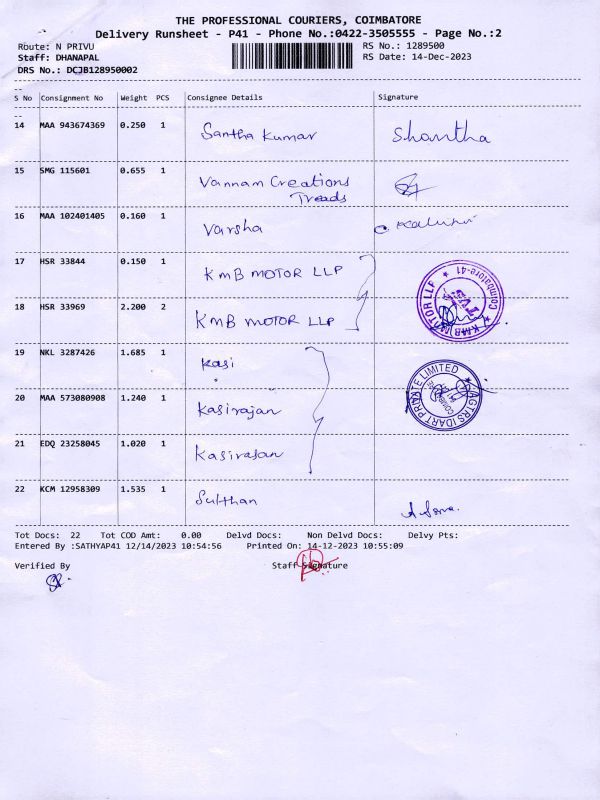 THE PROFESSIONAL COURIERS, COIMBATORE
Delivery Runsheet - P41 - Phone No.:0422-3505555 - Page No.:2
Route: N PRIVU
RS No.: 1289500
Staff: DHANAPAL
RS Date: 14-Dec-2023
DRS No.: DCJB128950002
S No Consignment No Weight PCS Consignee Details Signature
14 MAA 943674369 0.250 1 Santha Kumar Shantha
15 SMG 115601 0.655 1 Vannam Creations
Treads
16 MAA 102401405 0.160 1 Varsha
17 HSR 33844 0.150 1 KMB MOTOR LLP
18 HSR 33969 2.200 2 KMB MOTOR LLP
KMB MOTOR LLP * Coimbatore-41 *
19 NKL 3287426 1.685 1 Kasi
20 MAA 573080908 1.240 1 Kasirajan
PRIVATE LIMITED
21 EDQ 23258045 1.020 1 Kasirajan
22 KCM 12958309 1.535 1 Sulthan
Tot Docs: 22 Tot COD Amt: 0.00 Delvd Docs: Non Delvd Docs: Delvy Pts:
Entered By :SATHYAP41 12/14/2023 10:54:56 Printed On: 14-12-2023 10:55:09
Verified By Staff Signature